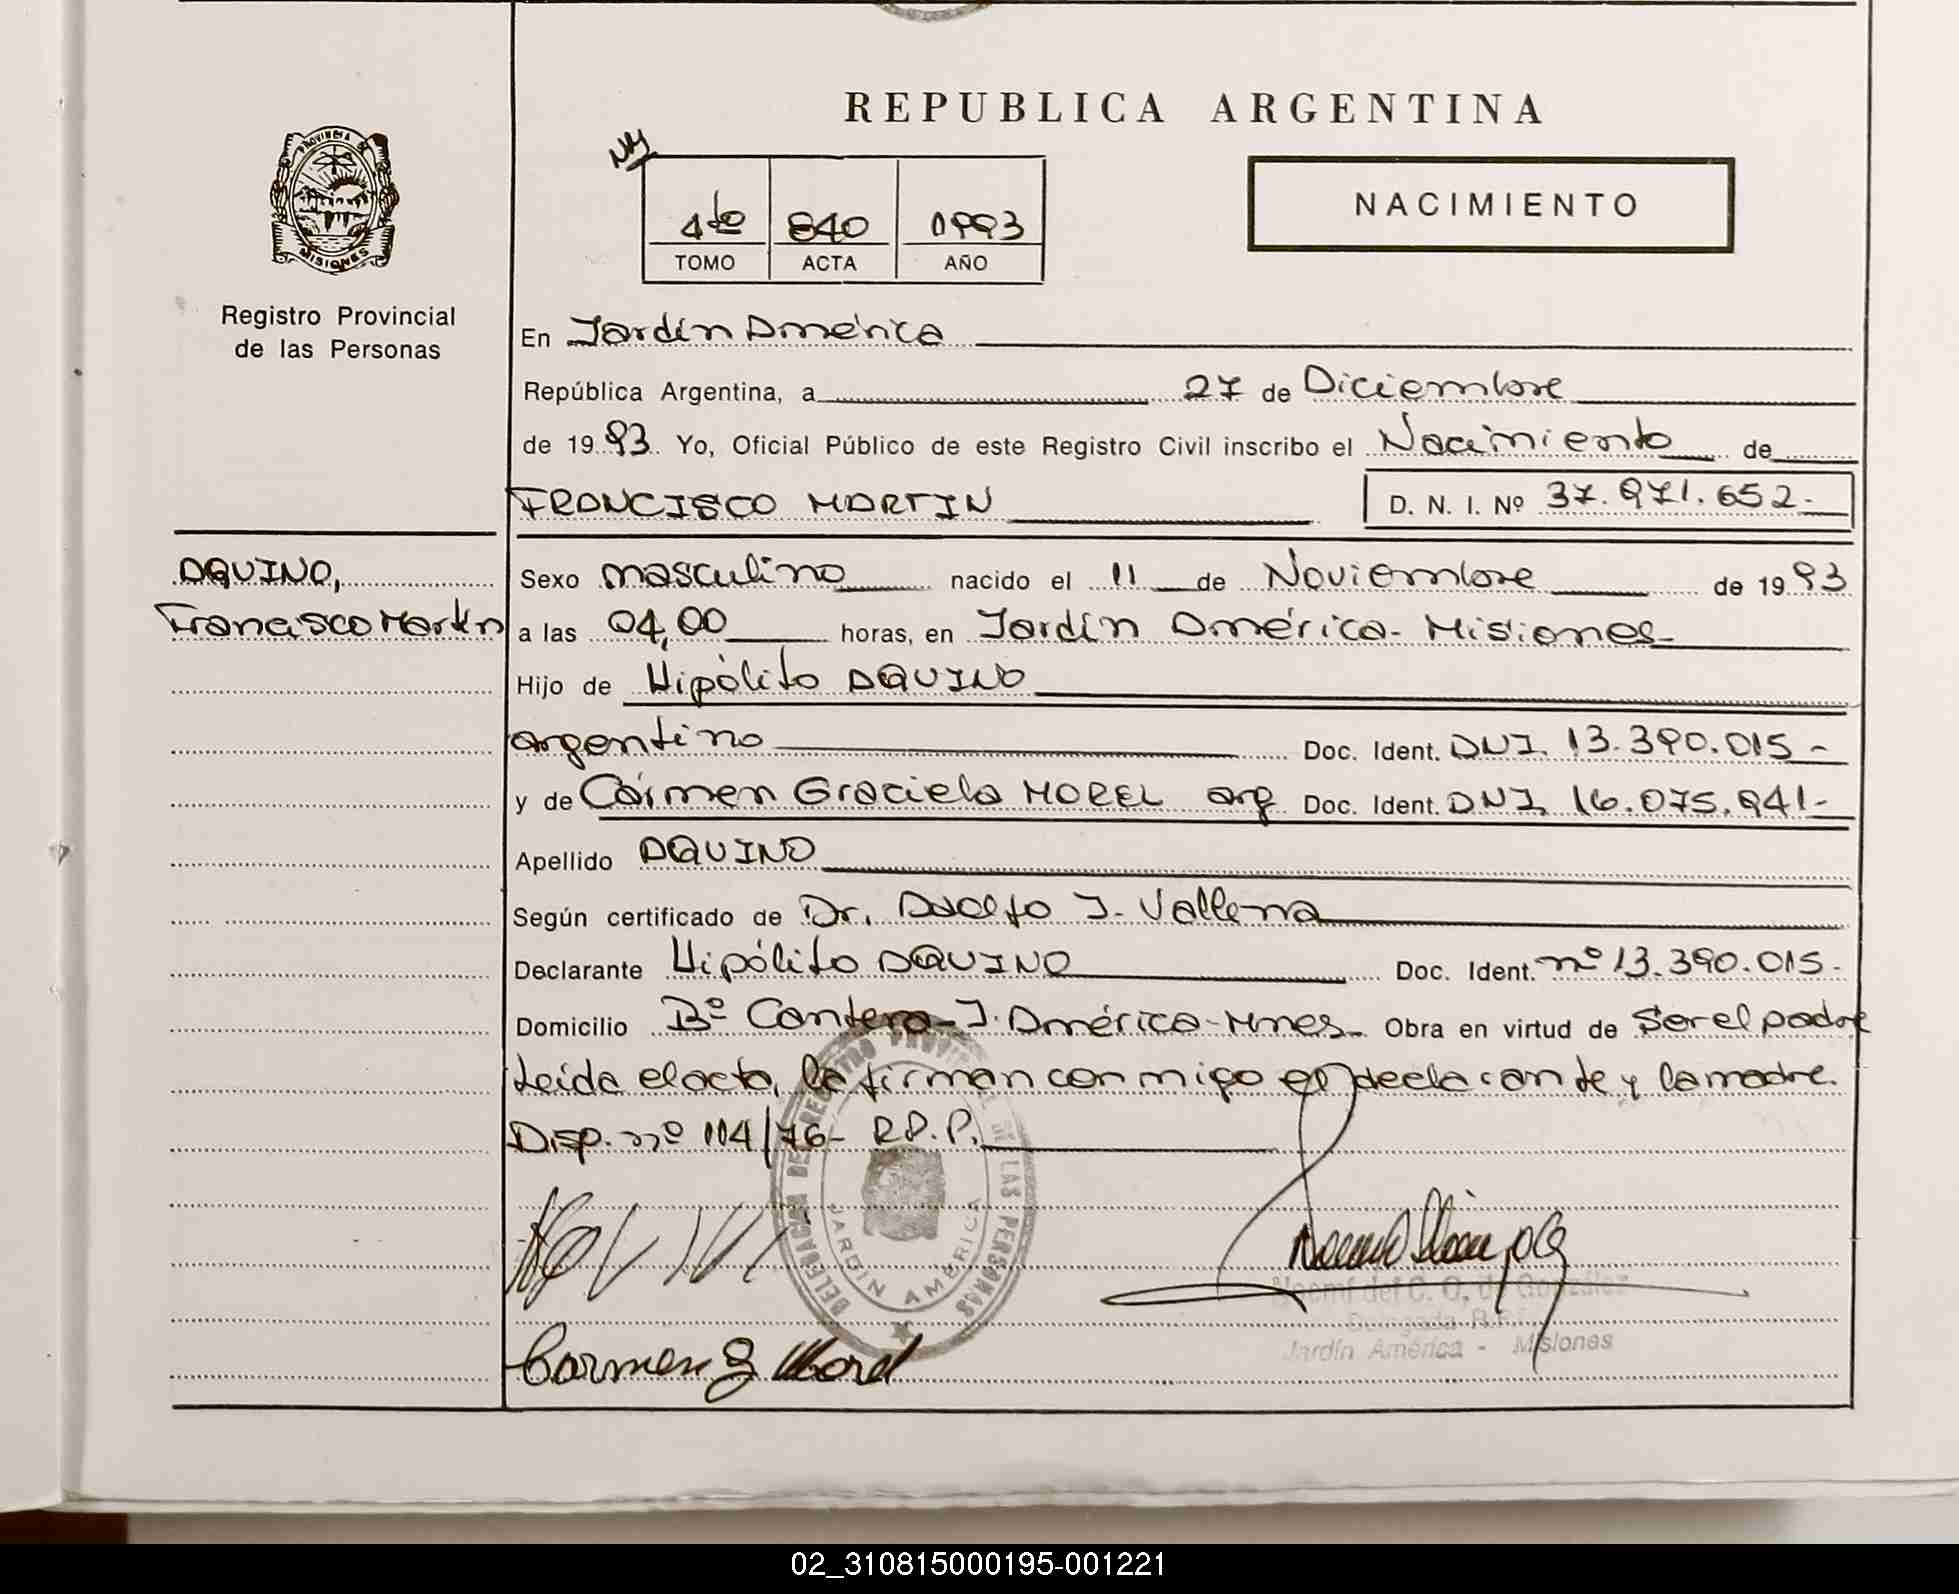 REPUBLICA ARGENTINA
NACIMIENTO
PROVINCIA DE
MISIONES
Registro Provincial
de las Personas
4to 840 1993
TOMO ACTA AÑO
En Jardín América
República Argentina, a 27 de Diciembre
de 1993 Yo, Oficial Público de este Registro Civil inscribo el Nacimiento de
FRANCISCO MARTIN D. N. I. Nº 37.971.652.-
AQUINO,
Francisco Martín
Sexo masculino nacido el 11 de Noviembre de 1993
a las 04,00 horas, en Jardín América - Misiones
Hijo de Hipólito AQUINO
argentino Doc. Ident. DNI. 13.390.015 -
y de Cármen Graciela MOREL arg Doc. Ident. DNI. 16.075.941 -
Apellido AQUINO
Según certificado de Dr. Adolfo J.
Declarante Hipólito AQUINO Doc. Ident. nº 13.390.015.
Domicilio Bº Cantera - J. América - Mnes. Obra en virtud de Ser el padre
Leída el acta, la firman conmigo el declarante y la madre.
Disp. nº 114/76 - R.P.P.
DELEGACION DEL REGISTRO PROVINCIAL DE LAS PERSONAS
JARDIN AMERICA
Noemí del C. O. de González
Delegada
Jardín América - Misiones
Carmen G Morel
02_310815000195-001221